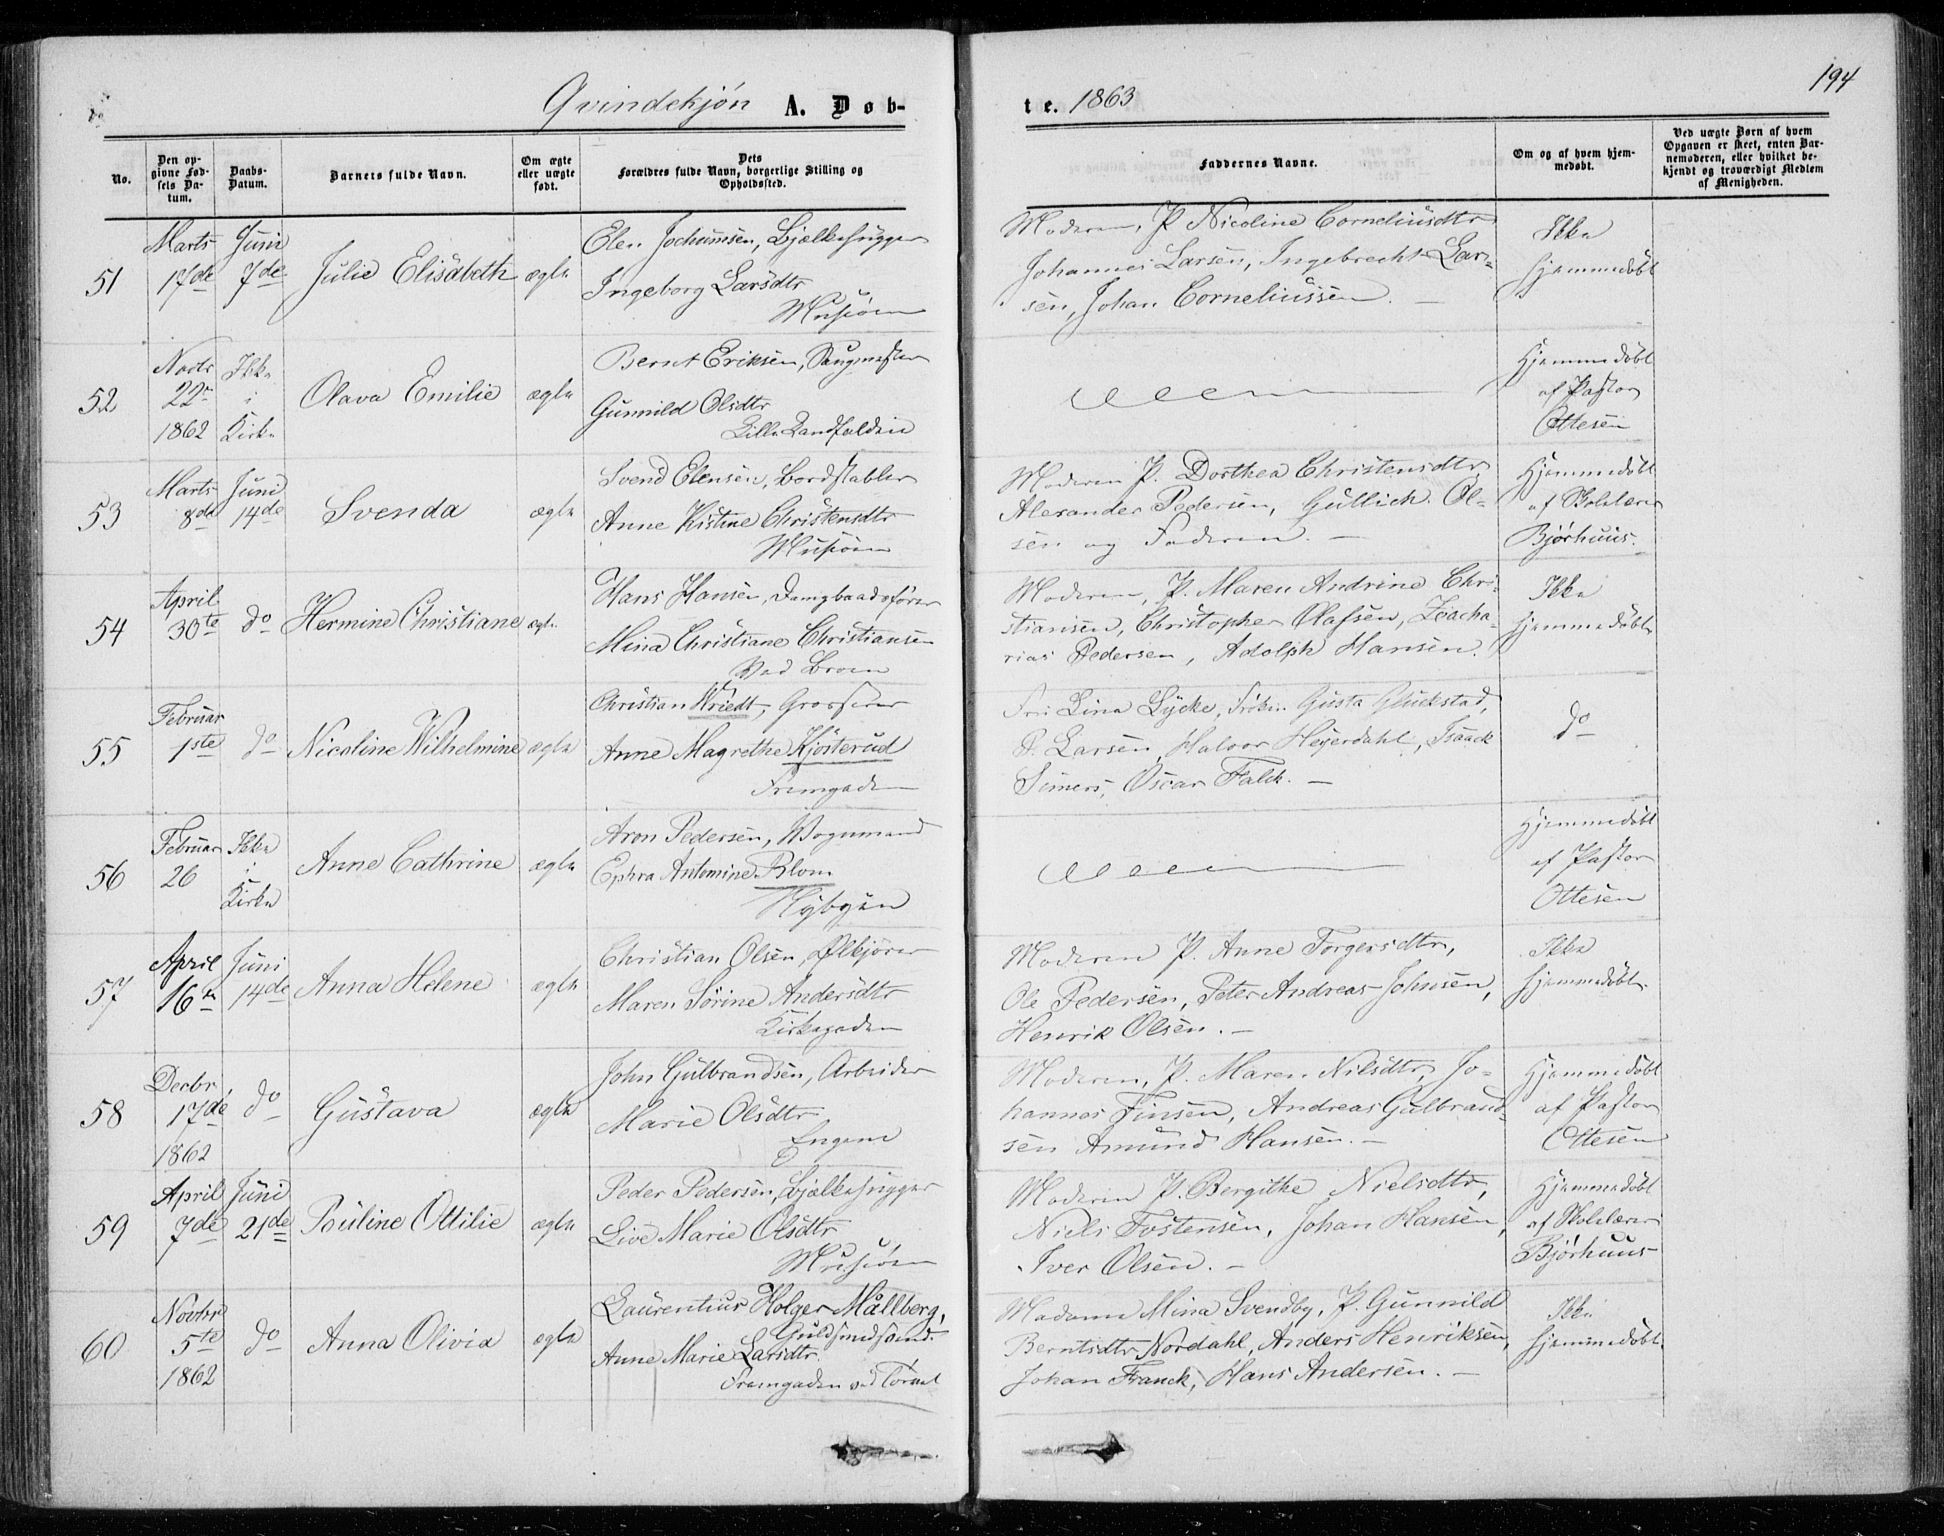 Qvindekjøn A. Døb-
te. 1863
194
No.
Den op-
givne Fød-
sels Da-
tum.
Daabs-
Datum.
Barnets fulde Navn.
Om ægte
eller uægte
født.
Dets
Forældres fulde Navn, borgerlige Stilling og
Opholdssted.
Faddernes Navne.
Om og af hvem hjem-
medøbt.
Ved uægte Børn af hvem
Opgaven er skeet, enten Bar-
nemoderen, eller hvilket be-
kjendt og troværdigt Medlem
af Menigheden.
51
Marts
17de
Juni
7de
Julie Elisabeth
ægte
Elen Jochumsen, Bjælkehugger
Ingeborg Larsdtr
Musiøen
Moderen, P. Nicoline Corneliusdtr
Johannes Larsen, Ingebrecht Lar-
sen, Johan Corneliussen. —
Ikke
hjemmedøbt
52
Novbr
22
1862
Ikke
i
Kirke
Olava Emilie
ægte
Bernt Eriksen, Saugmester
Gunnild Olsdtr
Lille Landfalden
Hjemmedøbt
af Pastor
Ottesen
53
Marts
8de
Juni
14de
Svenda
ægte
Svend Elensen, Bordstabler
Anne Kistine Christensdtr
Musiøen
Moderen P. Dorthea Christensdtr
Alexander Pedersen, Gullich Ol-
sen og Faderen. —
Hjemmedøbt
af Skolelærer
Bjørhuus.
54
April
30te
do
Hermine Christiane
ægte
Hans Hansen, Dampbaadsfører
Mina Christiane Christiansen
Ved Broen
Moderen, P. Maren Andrine Chri-
stiansen, Christopher Olafsen, Zacha-
rias Pedersen, Adolph Hansen.
Ikke
hjemmedøbt
55
Februar
1ste
do
Nicoline Wilhelmine
ægte
Christian Wriedt, Grosserer
Anne Magrethe Kjøsterud
Fremgaden
Fru Lina Lycke, Frøken Gusta Glückstad,
P. Larsen, Halvor Heyerdahl, Isaack
Simers, Oscar Falck. —
do
56
Februar
26
Ikke
i
Kirke
Anne Cathrine
ægte
Aron Pedersen, Vognmand
Ephra Antomine Blom
Nybyen
Hjemmedøbt
af Pastor
Ottesen
57
April
16de
Juni
14de
Anna Helene
ægte
Christian Olsen, Ølkjører
Maren Sørine Andersdtr
Kirkegaden
Moderen P. Anne Torgersdtr,
Ole Pedersen, Peter Andreas Johnsen,
Henrik Olsen. —
Ikke
hjemmedøbt
58
Decbr
17de
1862
do
Gustava
ægte
John Gulbrandsen, Arbeider
Marie Olsdtr
Engene
Moderen, P. Maren Nilsdtr, Jo-
hannes Finsen, Andreas Gulbrand-
sen Amund Hansen. —
Hjemmedøbt
af Pastor
Ottesen
59
April
7de
Juni
21de
Pouline Ottilie
ægte
Peder Pedersen, Bjælkehugger
Live Marie Olsdtr
Musiøen
Moderen P. Bergithe Nielsdtr,
Niels Tostensen, Johan Hansen,
Iver Olsen. —
Hjemmedøbt
af Skolelærer
Bjørhuus
60
Novbr
5te
1862
do
Anna Olivia
ægte
Laurentius Holger Mallberg,
Guldsmedsvend.
Anne Marie Larsdtr.
Fremgaden ved Torvet
Madame Mina Svendby, P. Gunnild
Berntsdtr Nordahl, Anders Henriksen,
Johan Franck, Hans Andersen. —
Ikke
hjemmedøbt.